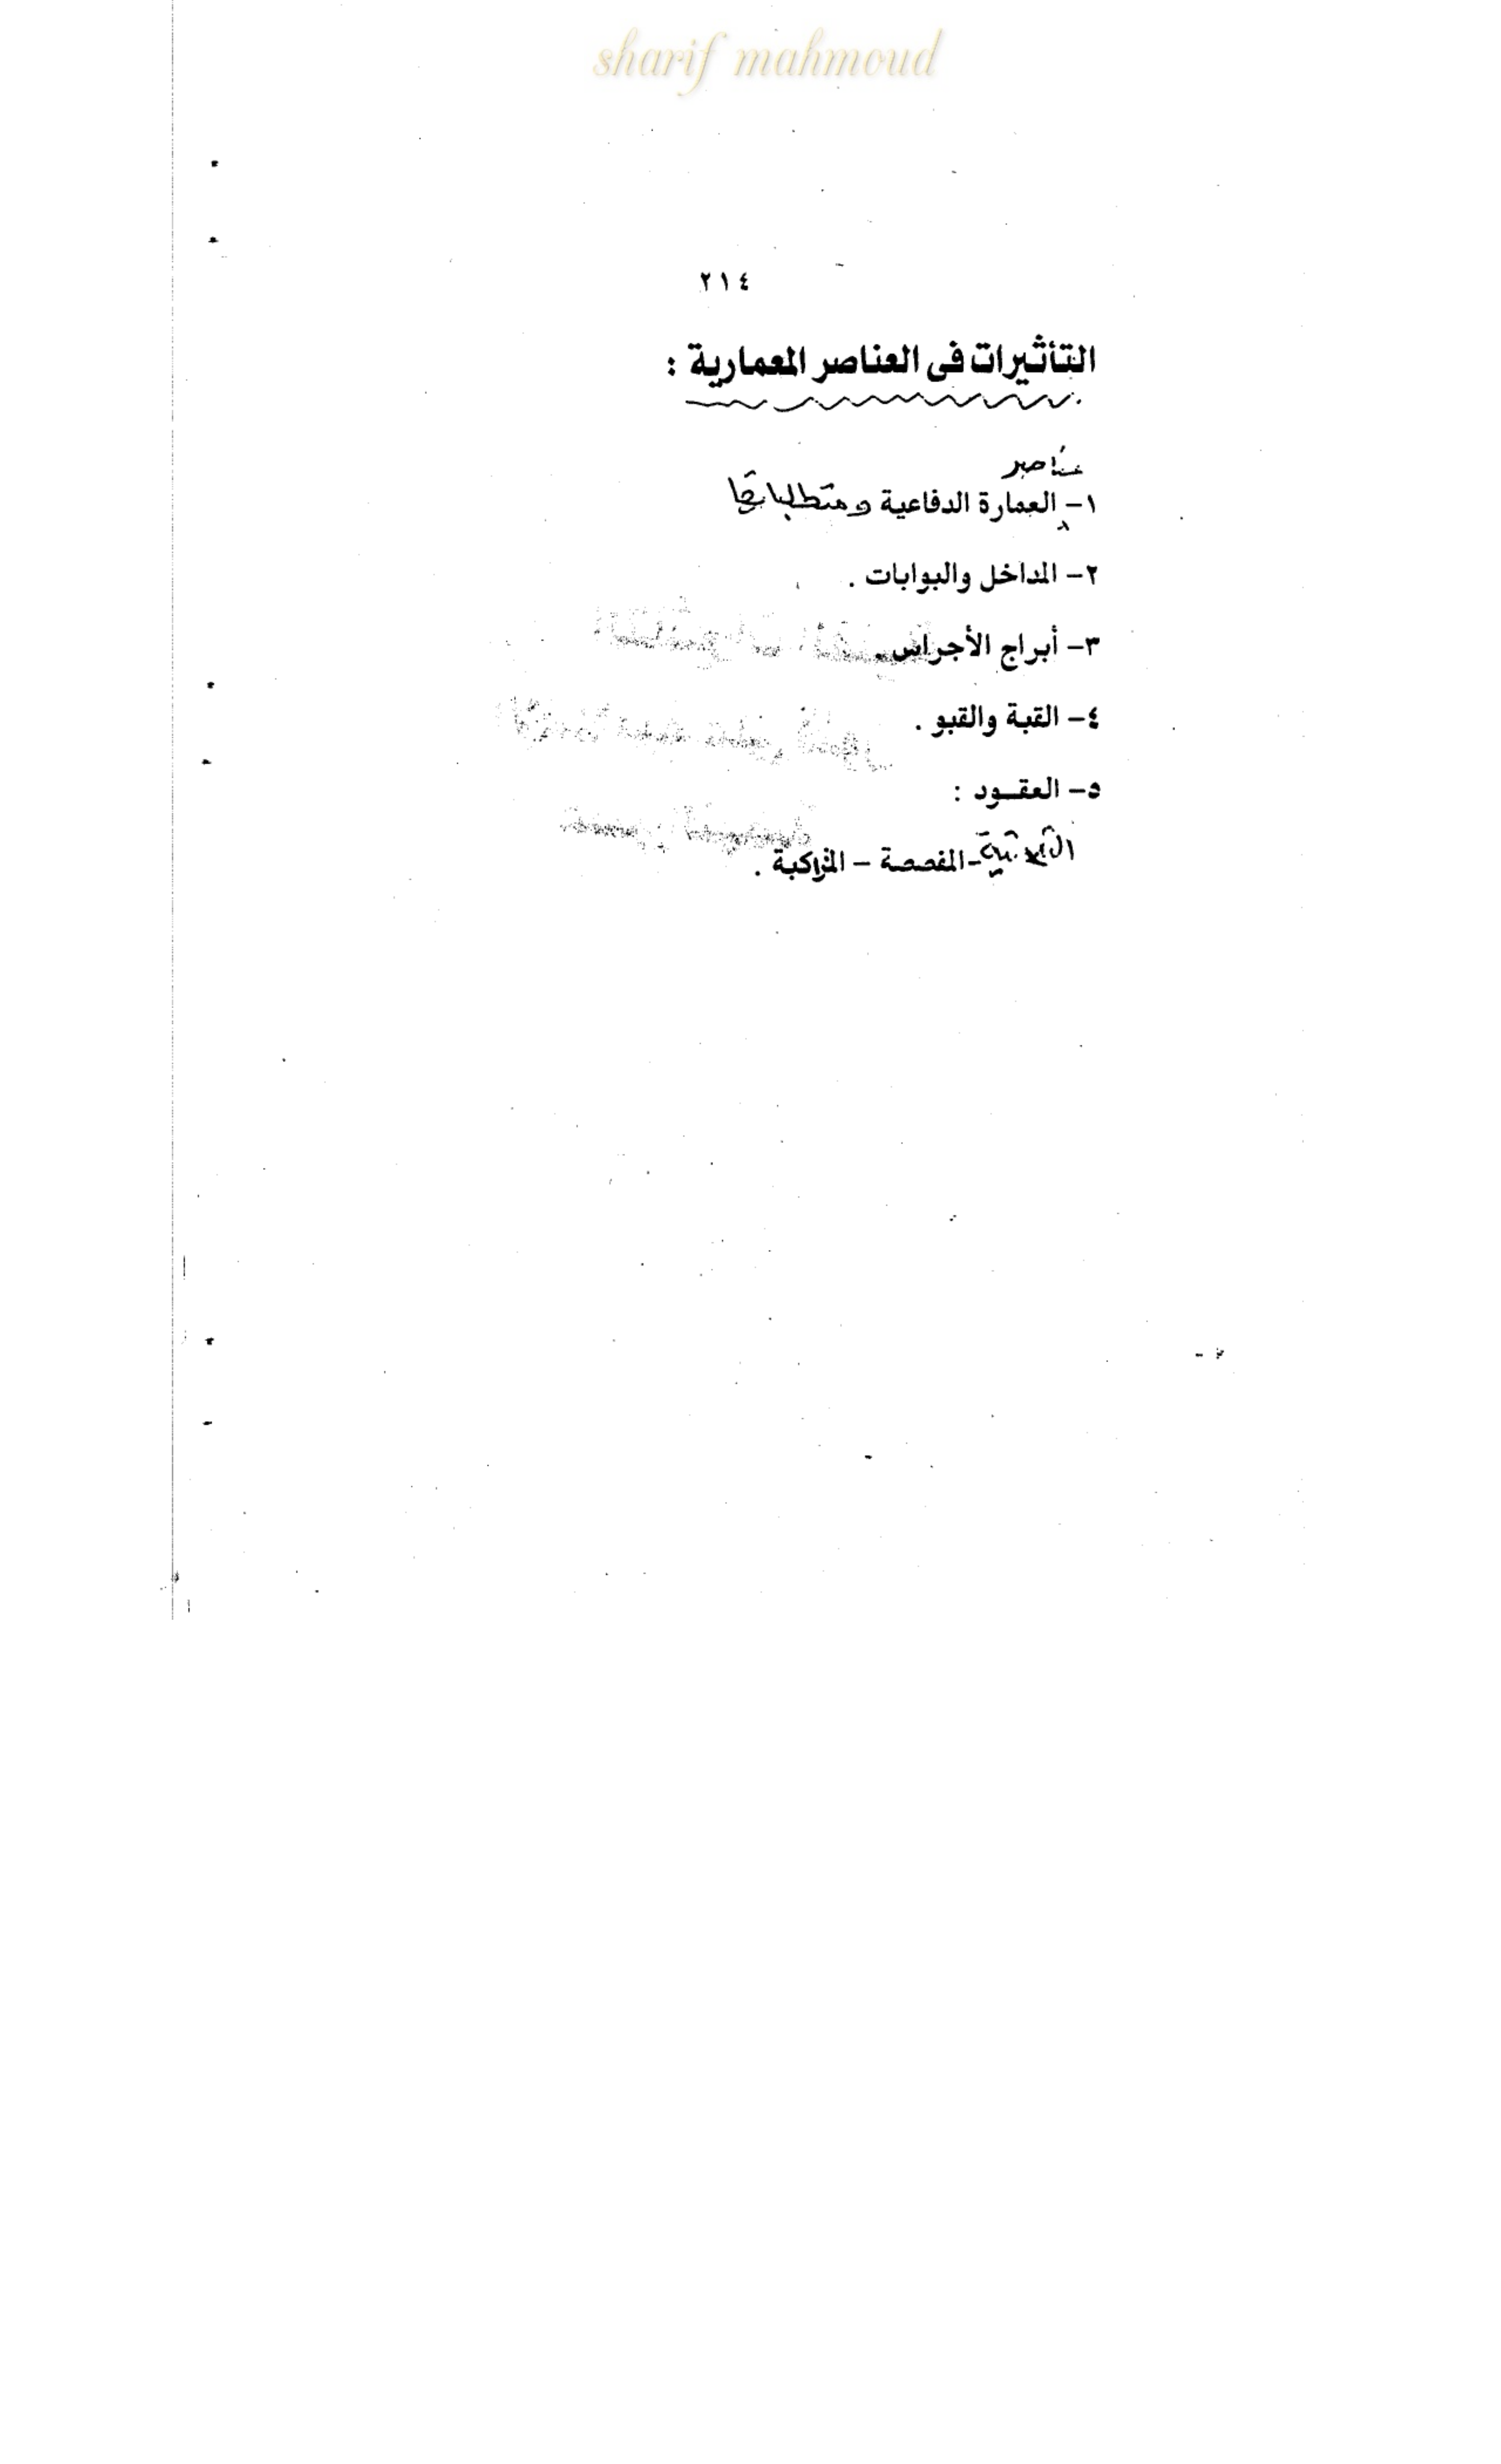 sharif mahmoud
٢١٤
التأثيرات فى العناصر المعمارية :
عناصر
١- العمارة الدفاعية ومتطلباتها
٢- المداخل والبوابات .
٣- أبراج الأجراس .
٤- القبة والقبو .
٥- العقــود :
- المفصصة - المتراكبة .